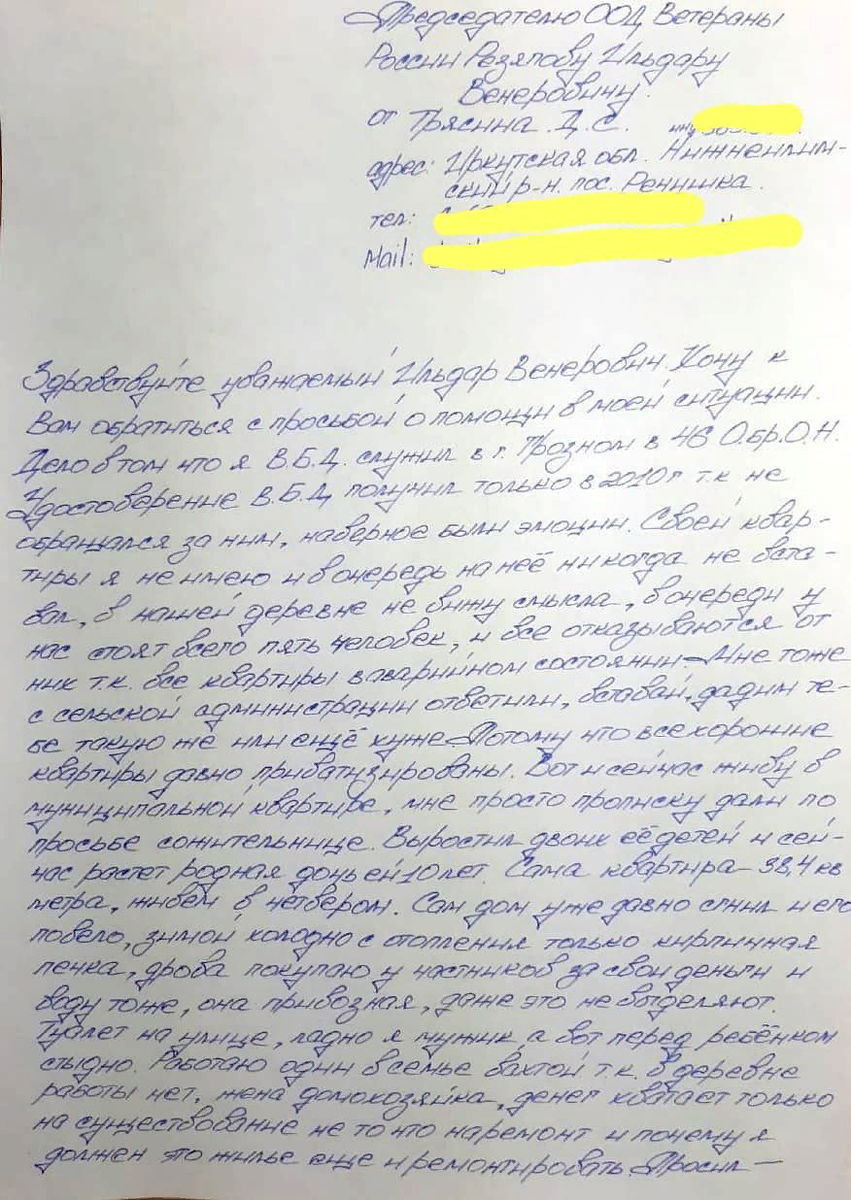 Председателю ООД Ветераны
России Резяпову Ильдару
Венеровичу.
от Трясина Д.С. инн
адрес: Иркутская обл. Нижнеилим-
ский р-н. пос. Речушка.
тел:
Mail:
Здравствуйте уважаемый Ильдар Венерович. Хочу к
Вам обратиться с просьбой о помощи в моей ситуации.
Дело в том что я В.Б.Д. служил в г. Грозном в 46 О.бр.О.Н.
Удостоверение В.Б.Д получил только в 2010г т.к не
обращался за ним, наверное были эмоции. Своей квар-
тиры я не имею и в очередь на неё никогда не вста-
вал, в нашей деревне не вижу смысла, в очереди у
нас стоят всего пять человек, и все отказываются от
них т.к. все квартиры в аварийном состоянии. Мне тоже
с сельской администрации ответили, вставай, дадим те-
бе такую же или ещё хуже. Потому что все хорошие
квартиры давно приватизированы. Вот и сейчас живу в
муниципальной квартире, мне просто прописку дали по
просьбе сожительнице. Выростил двоих её детей и сей-
час растет родная дочь ей 10 лет. Сама квартира 38,4 кв
метра, живём в четвером. Сам дом уже давно сгнил и его
повело, зимой холодно с отопления только кирпичная
печка, дрова покупаю у частников за свои деньги и
воду тоже, она привозная, даже это не выделяют.
Туалет на улице, ладно я мужик, а вот перед ребёнком
стыдно. Работаю один в семье вахтой т.к. в деревне
работы нет, жена домохозяйка, денег хватает только
на существование не то что на ремонт и почему я
должен это жилье еще и ремонтировать. Просил